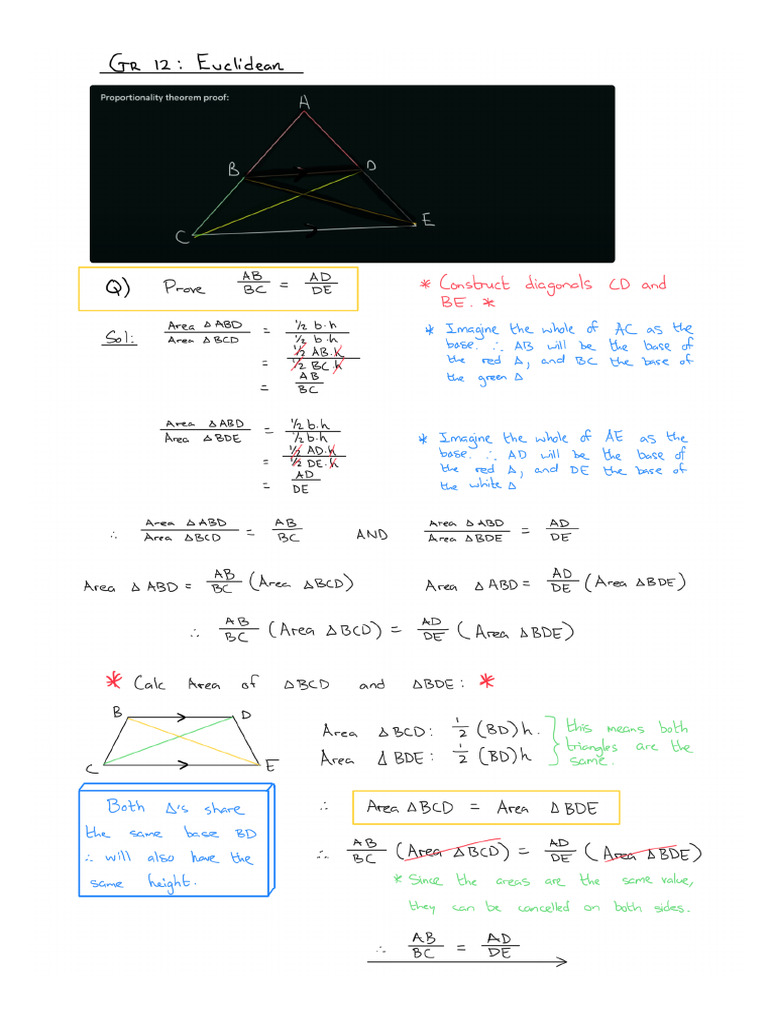 GR 12: Euclidean
Proportionality theorem proof:
A
B
D
C
E
Q) Prove AB/BC = AD/DE
* Construct diagonals CD and
BE. *
Sol: Area △ABD/Area △BCD = ½ b.h/½ b.h
= ½ AB.h/½ BC.h
= AB/BC
* Imagine the whole of AC as the
base. ∴ AB will be the base of
the red △, and BC the base of
the green △
Area △ABD/Area △BDE = ½ b.h/½ b.h
= ½ AD.h/½ DE.h
= AD/DE
* Imagine the whole of AE as the
base. ∴ AD will be the base of
the red △, and DE the base of
the white △
∴ Area △ABD/Area △BCD = AB/BC AND Area △ABD/Area △BDE = AD/DE
Area △ABD = AB/BC (Area △BCD) Area △ABD = AD/DE (Area △BDE)
∴ AB/BC (Area △BCD) = AD/DE (Area △BDE)
* Calc Area of △BCD and △BDE: *
B
D
C
E
Area △BCD: ½ (BD)h.
Area △BDE: ½ (BD)h
this means both
triangles are the
same.
Both △'s share
the same base BD
∴ will also have the
same height.
∴ Area △BCD = Area △BDE
∴ AB/BC (Area △BCD) = AD/DE (Area △BDE)
* Since the areas are the same value,
they can be cancelled on both sides.
∴ AB/BC = AD/DE